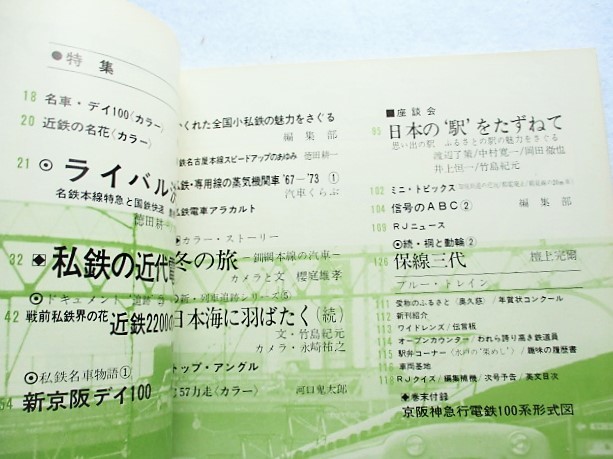 ●特集
18 名車・デイ100〈カラー〉
20 近鉄の名花〈カラー〉
21 ◉ ライバル
名鉄本線特急と国鉄快速
徳田耕一
32 ◆ 私鉄の近代
◉ドキュメント
42 戦前私鉄界の花 近鉄2200
◉私鉄名車物語①
54 新京阪デイ100
くれた全国小私鉄の魅力をさぐる
編集部
鉄名古屋本線スピードアップのあゆみ 徳田耕一
鉄・専用線の蒸気機関車'67−'73 ①
汽車くらぶ
鉄電車アラカルト
◉カラー・ストーリー
冬の旅 −釧網本線の汽車−
カメラと文 櫻庭雄孝
新・列車追跡シリーズ⑤
日本海に羽ばたく(続)
文・竹島紀元
カメラ・永崎祐之
トップ・アングル
C57力走〈カラー〉 河口鬼太郎
■座談会
85 日本の'駅'をたずねて
思い出の駅 ふるさとの駅の魅力をさぐる
渡辺了策/中村寛一/岡田徹也
井上恒一/竹島紀元
102 ミニ・トピックス
104 信号のABC② 編集部
109 RJニュース
◉続・桐と動輪②
126 保線三代 檀上完爾
ブルー・トレイン
111 愛称のふるさと〈奥久慈〉/年賀状コンクール
112 新刊紹介
113 ワイドレンズ/伝言板
114 オープンカウンター/われら誇り高き鉄道員
115 駅弁コーナー〈水戸の"梁めし"〉/趣味の履歴書
116 車両基地
118 RJクイズ/編集補機/次号予告/英文目次
◆巻末付録
京阪神急行電鉄100系形式図